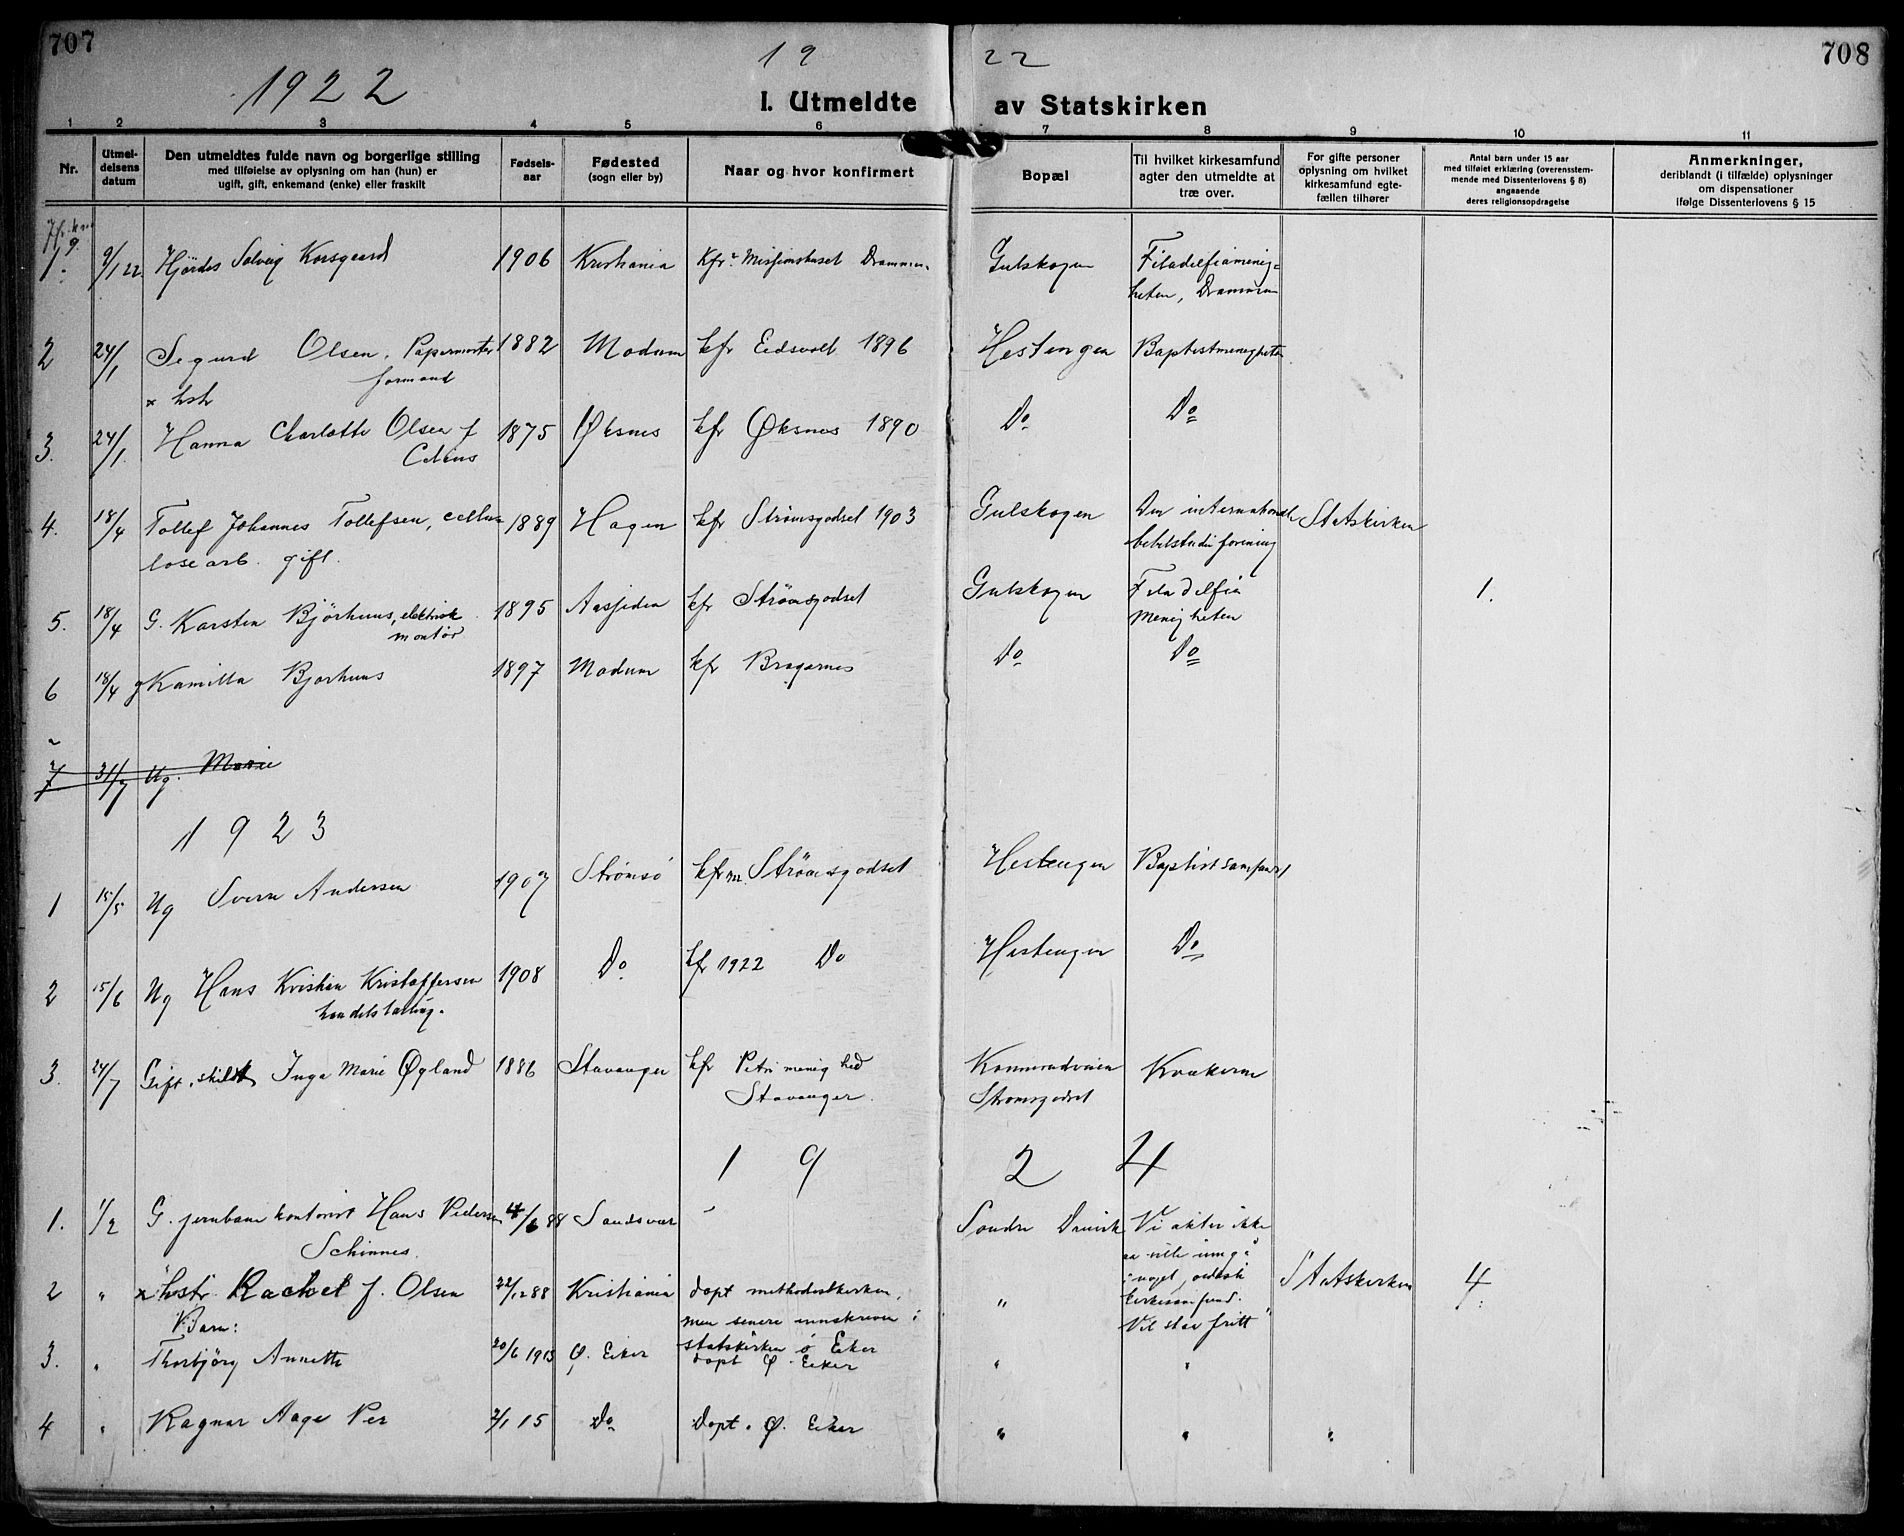 707
708
1922
19 22
I. Utmeldte av Statskirken
1 2 3 4 5 6 7 8 9 10 11
Nr.
Utmel-
delsens
datum
Den utmeldtes fulde navn og borgerlige stilling
med tilføielse av oplysning om han (hun) er
ugift, gift, enkemand (enke) eller fraskilt
Fødsels-
aar
Fødested
(sogn eller by)
Naar og hvor konfirmert
Bopæl
Til hvilket kirkesamfund
agter den utmeldte at
træ over.
For gifte personer
oplysning om hvilket
kirkesamfund egte-
fællen tilhører
Antal barn under 15 aar
med tilføiet erklæring (overensstem-
mende med Dissenterlovens § 8)
angaaende
deres religionsopdragelse
Anmerkninger,
deriblandt (i tilfælde) oplysninger
om dispensationer
ifølge Dissenterlovens § 15
1. 9/1 22. Hjördes Solveig Korsgaard 1906 Kristiania Kfr. Missionshuset Drammen. Gulskogen Filadelfiamenig-
heten, Drammen
2 24/1 Segurd Olsen, Papermester 1882 Modum kfr Eidsvolt 1896 Hestengen Baptistmenigheten
formand
x hstr
3. 24/1. Hanna Charlotte Olsen f 1875 Øksnes kfr Øksnes 1890 Do Do
4. 18/4 Tollef Johannes Tollefsen, cellu- 1889 Hagen kfr Strømsgodset 1903 Gulskogen Den internationale Statskirken
losearb. gift. bibelstudieforening
5. 18/4 G. Karsten Bjørhuus, elektrisk 1895 Aassiden kfr Strømsgodset Gulskogen Filadelfia 1.
montør menigheten
6 18/4 g Kamilla Bjørhuus 1897 Modum kfr Bragernes Do Do
7 31/7 Ug. Marie
1923
1 15/5 Ug Svern Andersen 1907 Strømsø kfr Strømsgodset Hestengen Baptistsamfund
2 15/6 Ug Hans Kristian Kristoffersen 1908 Do kfr 1922 Do Hestengen Do
handelslærling.
3. 24/7 Gift, skilt Inga Marie Øgland 1886 Stavanger kfr Petri menighed Konnerudveien Kvækerne
Stavanger. Strømsgodset
19 24
1. 1/2 G. jernbane kontorist Hans Pedersen 4/6 88 Sandsvær Søndre Vi akter ikke
Schinnes. aa ville inngå
2 " x hstr. Rachel f. Olsen 22/12 88 Kristiania døpt methodistkirken, " i noget Statskirken 4
Barn: men senere innskreven i kirkesamfund.
Vil staa fritt"
3. " Thorbjörg Annette 20/6 1913 Ø. Eiker statskirken Ø Eiker
døpt Ø. Eiker " "
4 " Ragnar Aage Per 2/1 15 Do Døpt. Ø. Eiker " " "